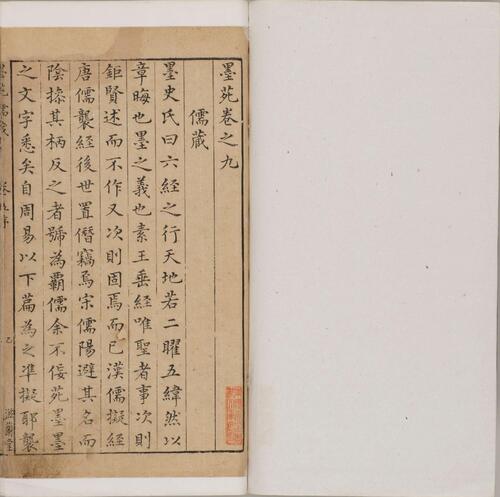 墨苑卷之九
儒藏
墨史氏曰六經之行天地若二曜五緯然以
章晦也墨之義也素王垂經唯聖者事次則
鉅賢述而不作又次則固焉而已漢儒擬經
唐儒襲經後世置僭竊焉宋儒陽避其名而
陰掾其柄反之者號為霸儒余不佞苑墨墨
之文字悉矣自周易以下篇為之準擬耶襲
墨苑 儒藏
卷九序
滋蘭堂